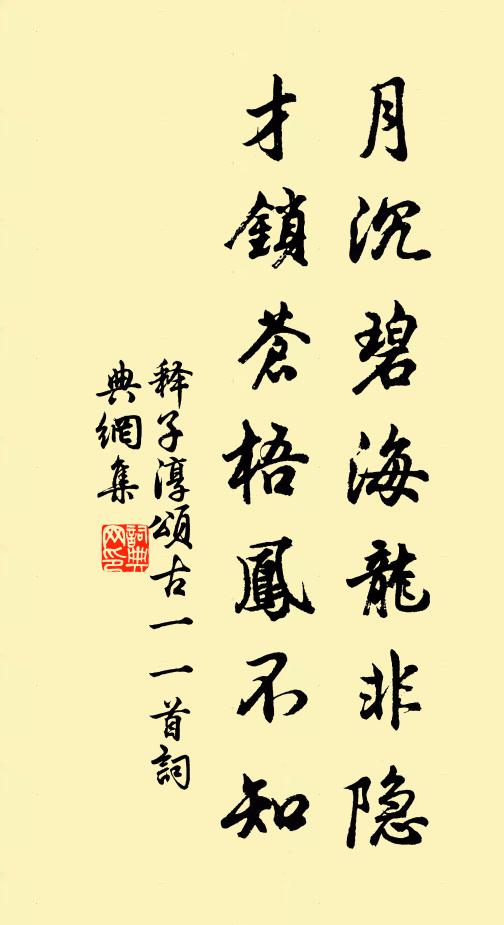 月沉碧海龍非隐
才鎖蒼梧鳳不知
释子淳頌古一一首詞
典網集
詞典
网印